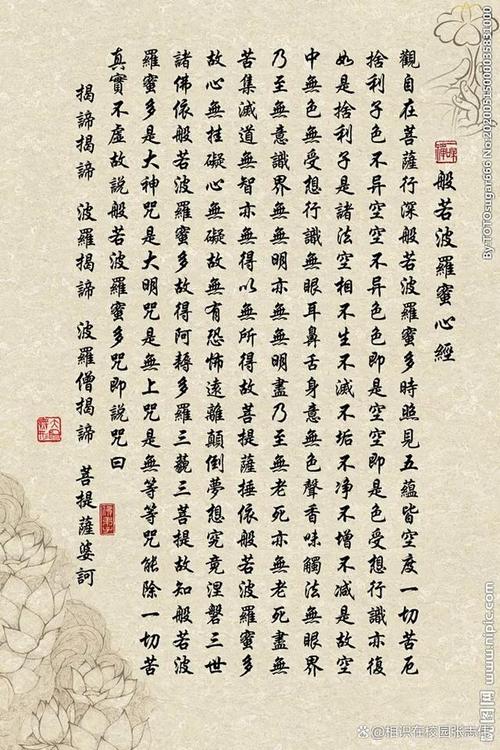 般若波羅蜜心經
觀自在菩薩行深般若波羅蜜多時照見五蘊皆空度一切苦厄
捨利子色不异空空不异色色即是空空即是色受想行識亦復
如是捨利子是諸法空相不生不滅不垢不净不增不减是故空
中無色無受想行識無眼耳鼻舌身意無色聲香味觸法無眼界
乃至無意識界無無明亦無無明盡乃至無老死亦無老死盡無
苦集滅道無智亦無得以無所得故菩提薩埵依般若波羅蜜多
故心無挂礙心無礙故無有恐怖遠離顛倒夢想究竟涅磐三世
諸佛依般若波羅蜜多故得阿耨多羅三藐三菩提故知般若波
羅蜜多是大神咒是大明咒是無上咒是無等等咒能除一切苦
真實不虛故說般若波羅蜜多咒即說咒曰
揭諦揭諦 波羅揭諦 波羅僧揭諦 菩提薩婆訶
By:TOTOsugar666 No:20200515000035831000
www.nipic.com
@相识在校园张志伟